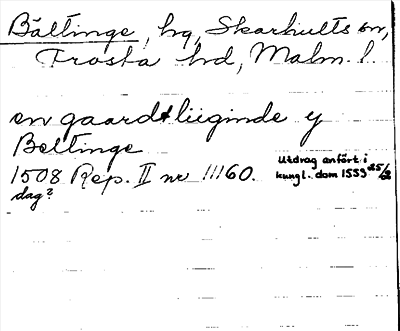 Bältinge, hg, Skarhults sn,
Frosta hd, Malm. l.
en gaard liiginde y
Beltinge
1508 Rep. II nr 11160.
dag?
Utdrag anfört i
kungl. dom 1559 25/2